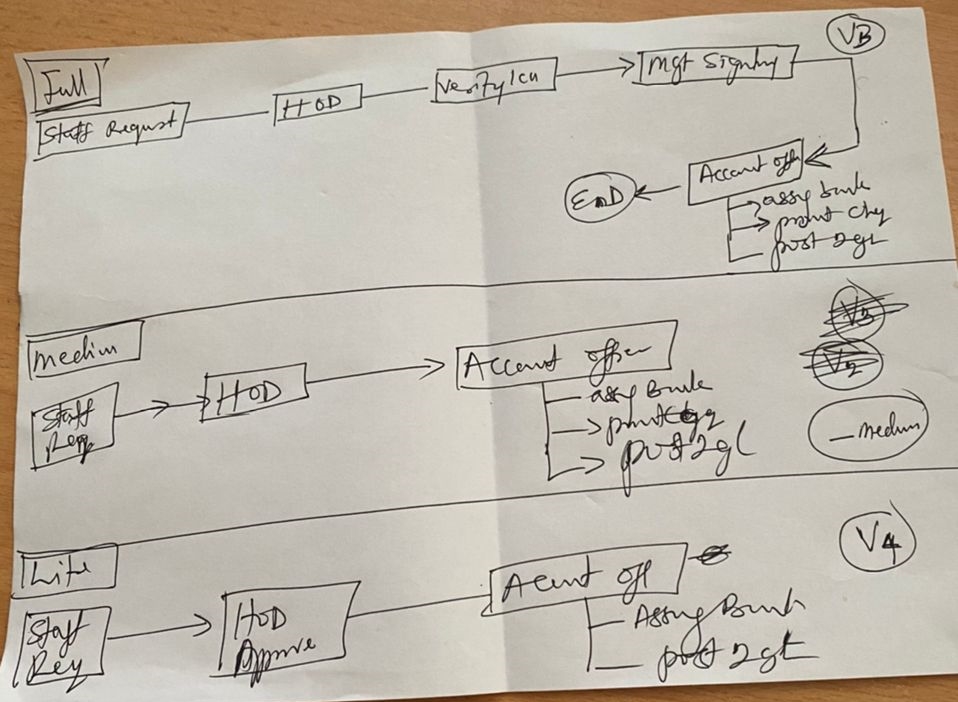 V3
Full
Staff Request
HOD
Verify/Icu
Mgt Signtry
Account offr
assg bank
print chq
post 2gl
EnD
V3
V2
medium
Medium
Staff
Req
HOD
Account officer
assg Bank
print chq
post 2gl
V4
Lite
Staff
Req
HOD
Approve
Account off
Assng Bank
post 2gl